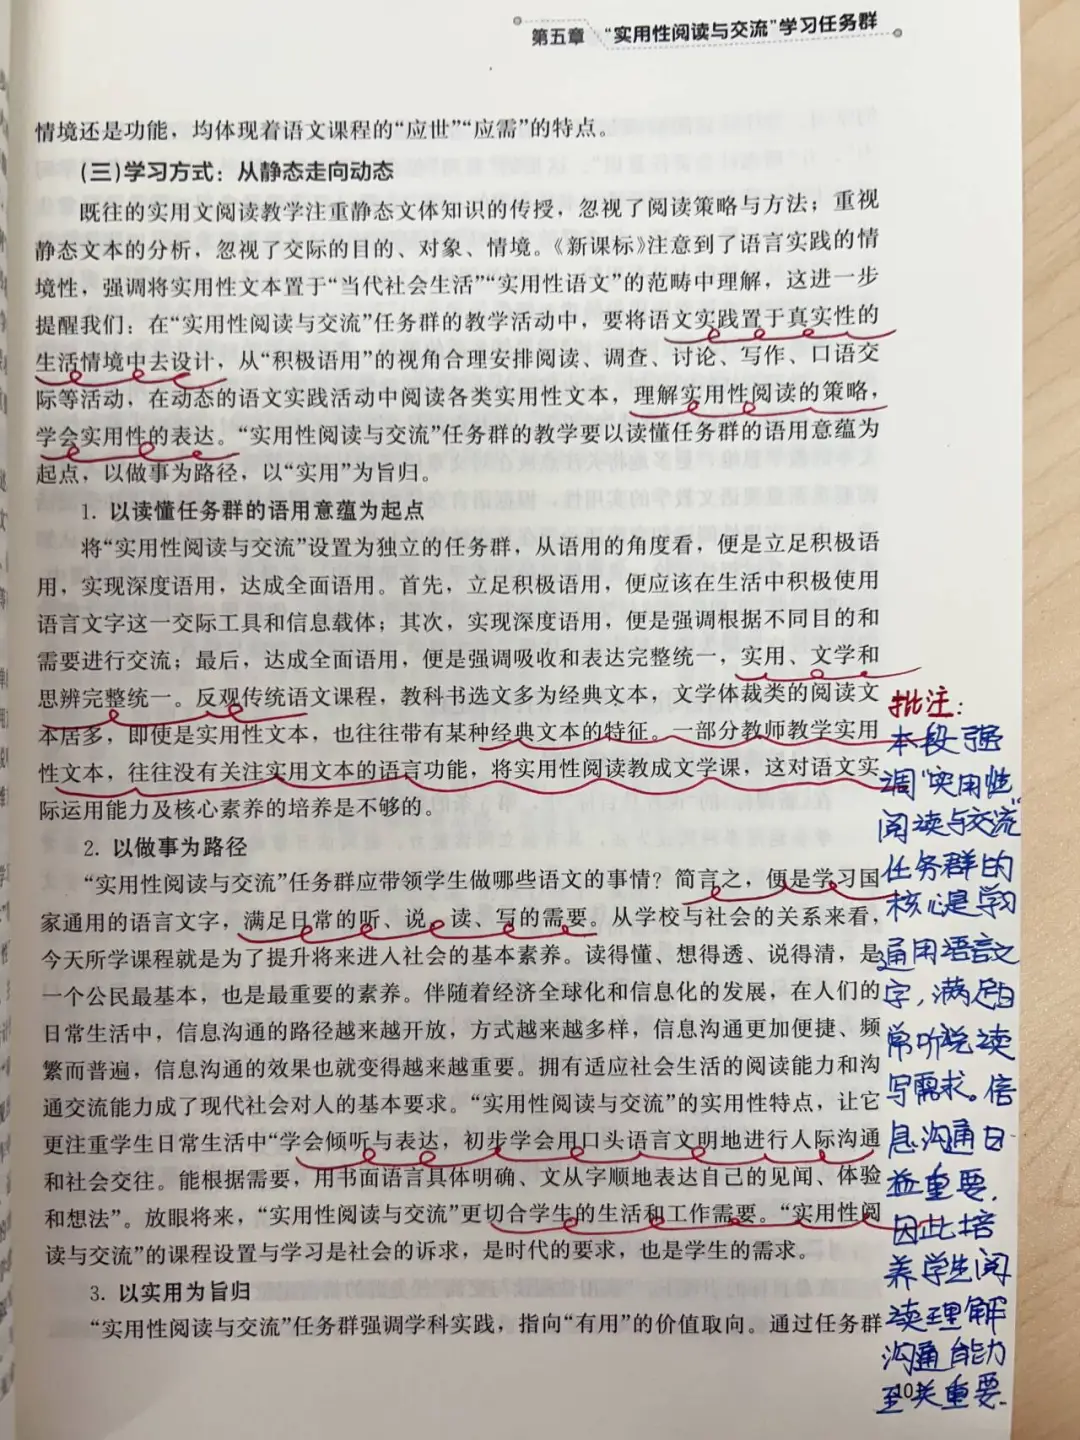 第五章 “实用性阅读与交流”学习任务群
情境还是功能，均体现着语文课程的“应世”“应需”的特点。
(三)学习方式：从静态走向动态
既往的实用文阅读教学注重静态文体知识的传授，忽视了阅读策略与方法；重视
静态文本的分析，忽视了交际的目的、对象、情境。《新课标》注意到了语言实践的情
境性，强调将实用性文本置于“当代社会生活”“实用性语文”的范畴中理解，这进一步
提醒我们：在“实用性阅读与交流”任务群的教学活动中，要将语文实践置于真实性的
生活情境中去设计，从“积极语用”的视角合理安排阅读、调查、讨论、写作、口语交
际等活动，在动态的语文实践活动中阅读各类实用性文本，理解实用性阅读的策略，
学会实用性的表达。“实用性阅读与交流”任务群的教学要以读懂任务群的语用意蕴为
起点，以做事为路径，以“实用”为旨归。
1. 以读懂任务群的语用意蕴为起点
将“实用性阅读与交流”设置为独立的任务群，从语用的角度看，便是立足积极语
用，实现深度语用，达成全面语用。首先，立足积极语用，便应该在生活中积极使用
语言文字这一交际工具和信息载体；其次，实现深度语用，便是强调根据不同目的和
需要进行交流；最后，达成全面语用，便是强调吸收和表达完整统一，实用、文学和
思辨完整统一。反观传统语文课程，教科书选文多为经典文本，文学体裁类的阅读文
本居多，即使是实用性文本，也往往带有某种经典文本的特征。一部分教师教学实用
性文本，往往没有关注实用文本的语言功能，将实用性阅读教成文学课，这对语文实
际运用能力及核心素养的培养是不够的。
2. 以做事为路径
“实用性阅读与交流”任务群应带领学生做哪些语文的事情？简言之，便是学习国
家通用的语言文字，满足日常的听、说、读、写的需要。从学校与社会的关系来看，
今天所学课程就是为了提升将来进入社会的基本素养。读得懂、想得透、说得清，是
一个公民最基本，也是最重要的素养。伴随着经济全球化和信息化的发展，在人们的
日常生活中，信息沟通的路径越来越开放，方式越来越多样，信息沟通更加便捷、频
繁而普遍，信息沟通的效果也就变得越来越重要。拥有适应社会生活的阅读能力和沟
通交流能力成了现代社会对人的基本要求。“实用性阅读与交流”的实用性特点，让它
更注重学生日常生活中“学会倾听与表达，初步学会用口头语言文明地进行人际沟通
和社会交往。能根据需要，用书面语言具体明确、文从字顺地表达自己的见闻、体验
和想法”。放眼将来，“实用性阅读与交流”更切合学生的生活和工作需要。“实用性阅
读与交流”的课程设置与学习是社会的诉求，是时代的要求，也是学生的需求。
3. 以实用为旨归
“实用性阅读与交流”任务群强调学科实践，指向“有用”的价值取向。通过任务群
批注：
本段强
调“实用性
阅读与交流”
任务群的
核心是学习
通用语言文
字，满足日
常听说读
写需求。信
息沟通日
益重要，
因此培
养学生阅
读理解
沟通能力
至关重要。